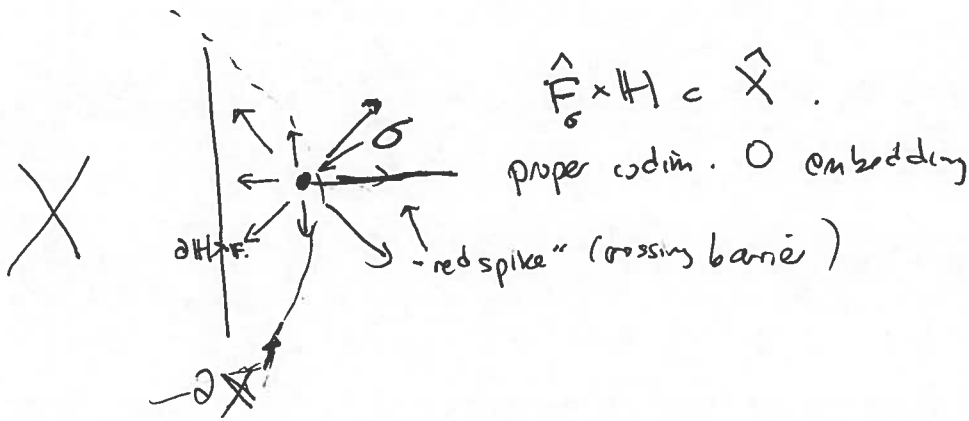 F̂_σ × ℍ ⊂ X̂ .
σ
proper codim. 0 embedding
X
∂ℍ × F.
"red spike" (crossing barrier)
−∂X